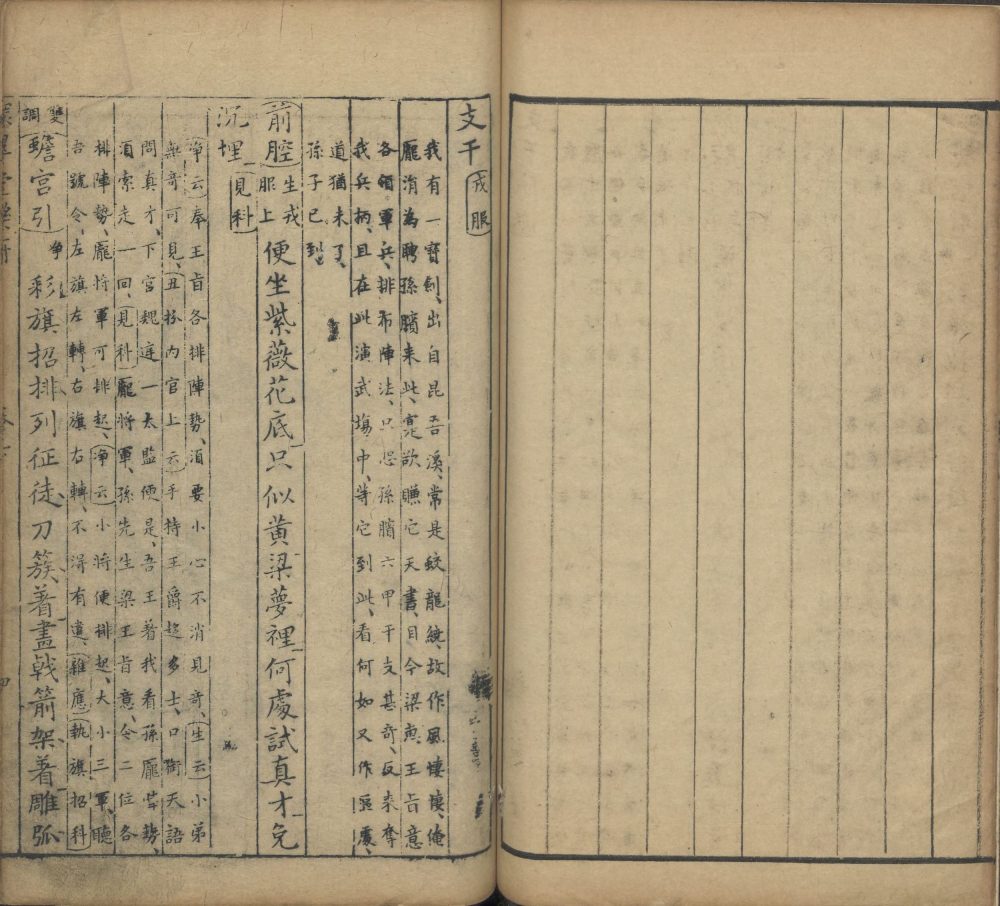 支干(戎服)
我有一寶劍、出自昆吾溪、常是蛟龍紋、故作風悽悽、俺
龐涓為聘孫臏来此、寔欲賺它天書、目今梁惠王旨意
各領軍兵、排布陣法、只恐孫臏六甲干支甚奇、反来奪
我兵柄、且在此演武塲中、等它到此、看何如又作區處、
道猶未了、
孫子已到
(前腔)生戎服上便坐紫薇花底只似黄粱夢裡何處試真才免
沉埋(見科)
(净云)奉王旨各排陣勢、須要小心不消見奇、(生云)小弟
無奇可見、(丑扮内官上云)手持王爵超多士、口銜天語
問真才、下官魏庭一太監便是、吾王著我看孫龐陣勢、
須索走一回、(見科)龐將軍、孫先生梁王旨意、令二位各
排陣勢、龐將軍可排起、(净云)小將便排起、大小三軍聽
吾號令、左旗左轉、右旗右轉、不得有違、(雜應)(執旗招科)
雙調(蟾宮引)净彩旗招排列征徒刀簇着畫戟箭架着雕弧